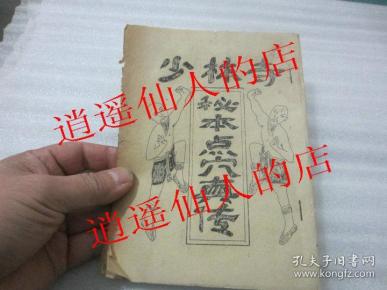 少林
逍遥仙人的店
秘本点穴
逍遥仙人的店
逍遥仙人的店
孔夫子旧书网
www.kongfz.com